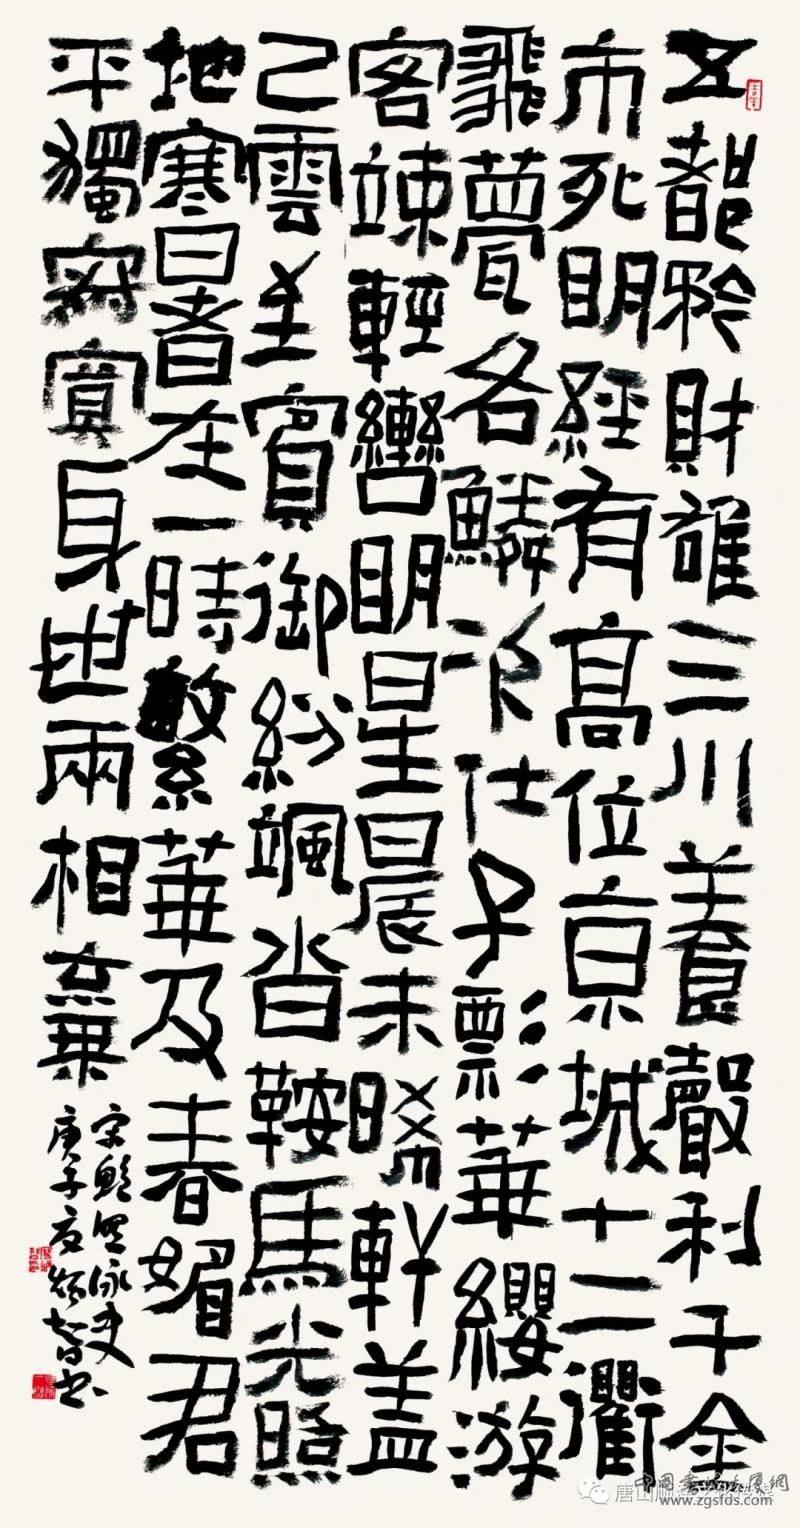 五都矜財雄三川養聲利千金
市死明經有高位京城十二衢
飛甍各鱗次仕子彯華纓游
客竦輕轡明星晨未晞軒盖
已雲至賓御紛颯沓鞍馬光照
地寒暑在一時繁華及春媚君
平獨寂寞身世兩相棄
宋鮑照詠史
庚子夏智书
唐山
www.zgsfds.com